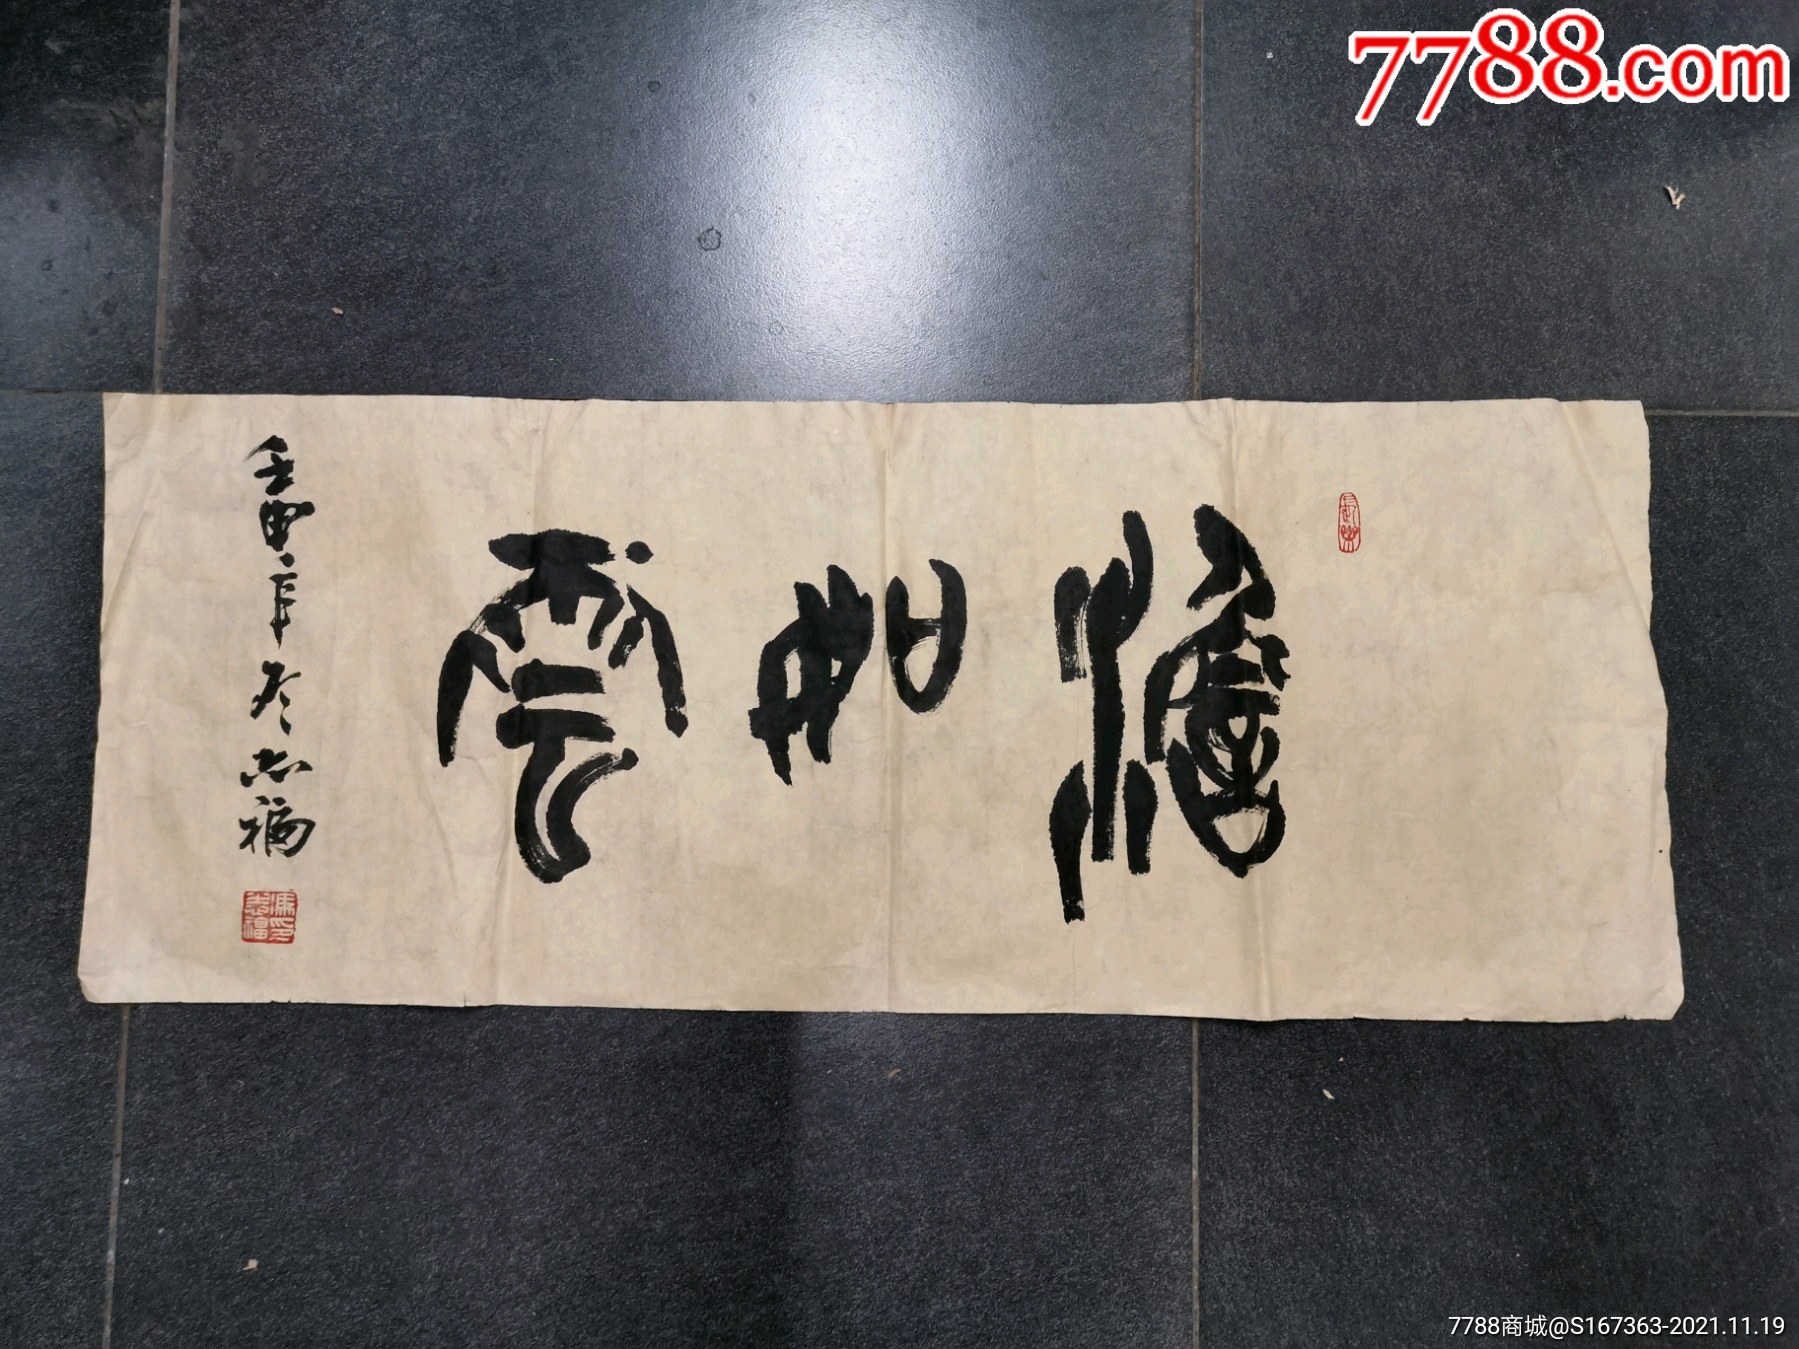 7788.com
澹如雲
壬申年冬志福
馮志福印
7788商城@S167363-2021.11.19